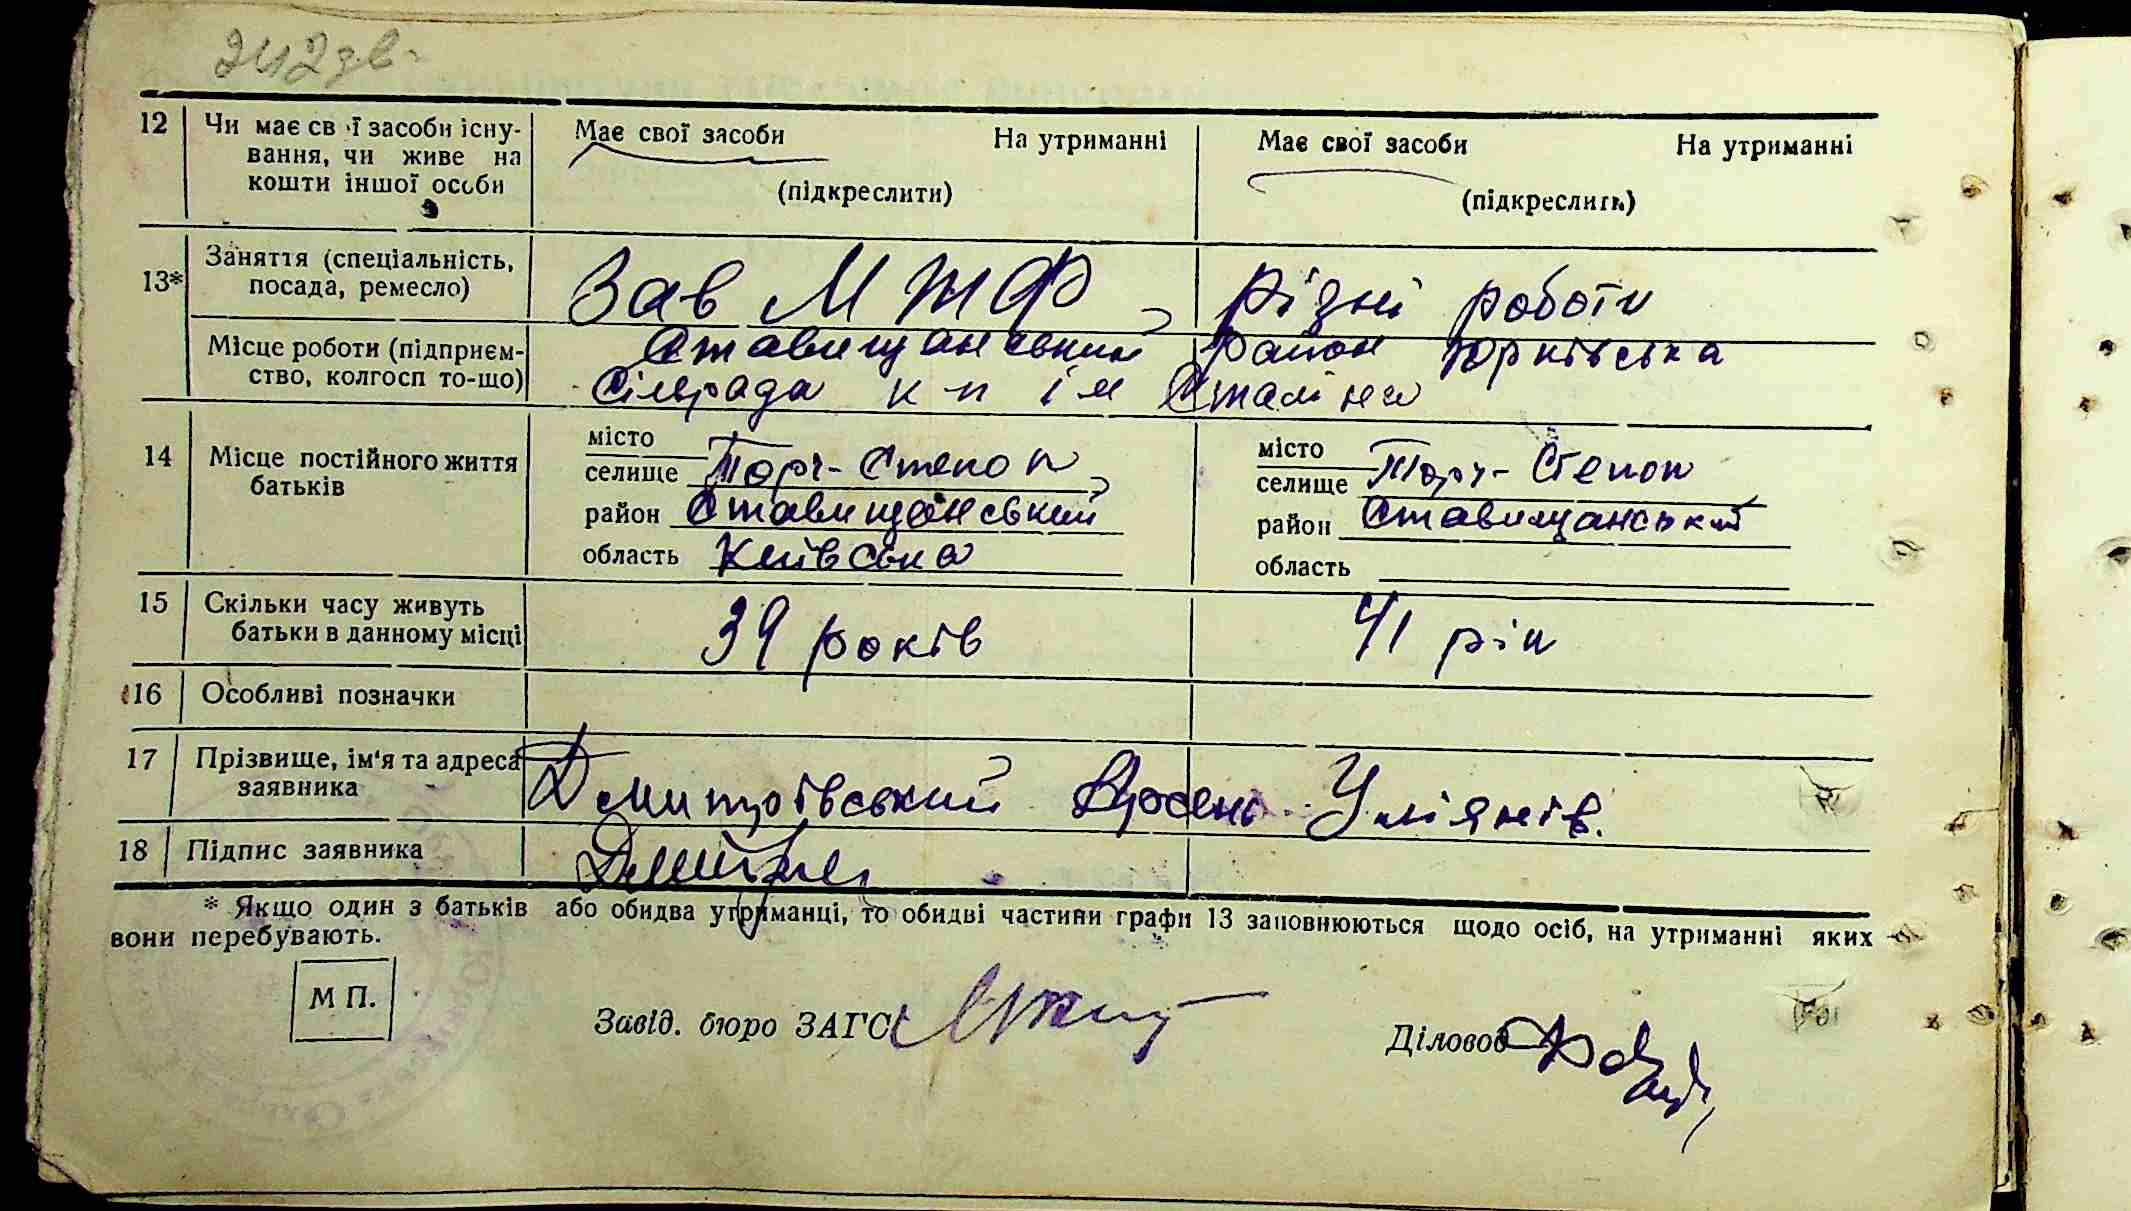 242 зв.
12 Чи має свої засоби існу- Має свої засоби На утриманні Має свої засоби На утриманні
вання, чи живе на
кошти іншої особи (підкреслити) (підкреслить)
13* Заняття (спеціальність, Зав МТФ різні роботи
посада, ремесло)
Місце роботи (підприєм- Ставищанський район Юрківська
ство, колгосп то-що) Сільрада к-п ім Сталіна
14 Місце постійного життя місто місто
батьків селище Торч-Степок селище Торч-Степок
район Ставищанський район Ставищанський
область Київська область
15 Скільки часу живуть 39 років 41 рік
батьки в данному місці
16 Особливі позначки
17 Прізвище, ім'я та адреса Дмитрівський Арсень Улянів.
заявника
18 Підпис заявника
* Якщо один з батьків або обидва утриманці, то обидві частини графи 13 заповнюються щодо осіб, на утриманні яких
вони перебувають.
М П.
Завід. бюро ЗАГС
Діловод